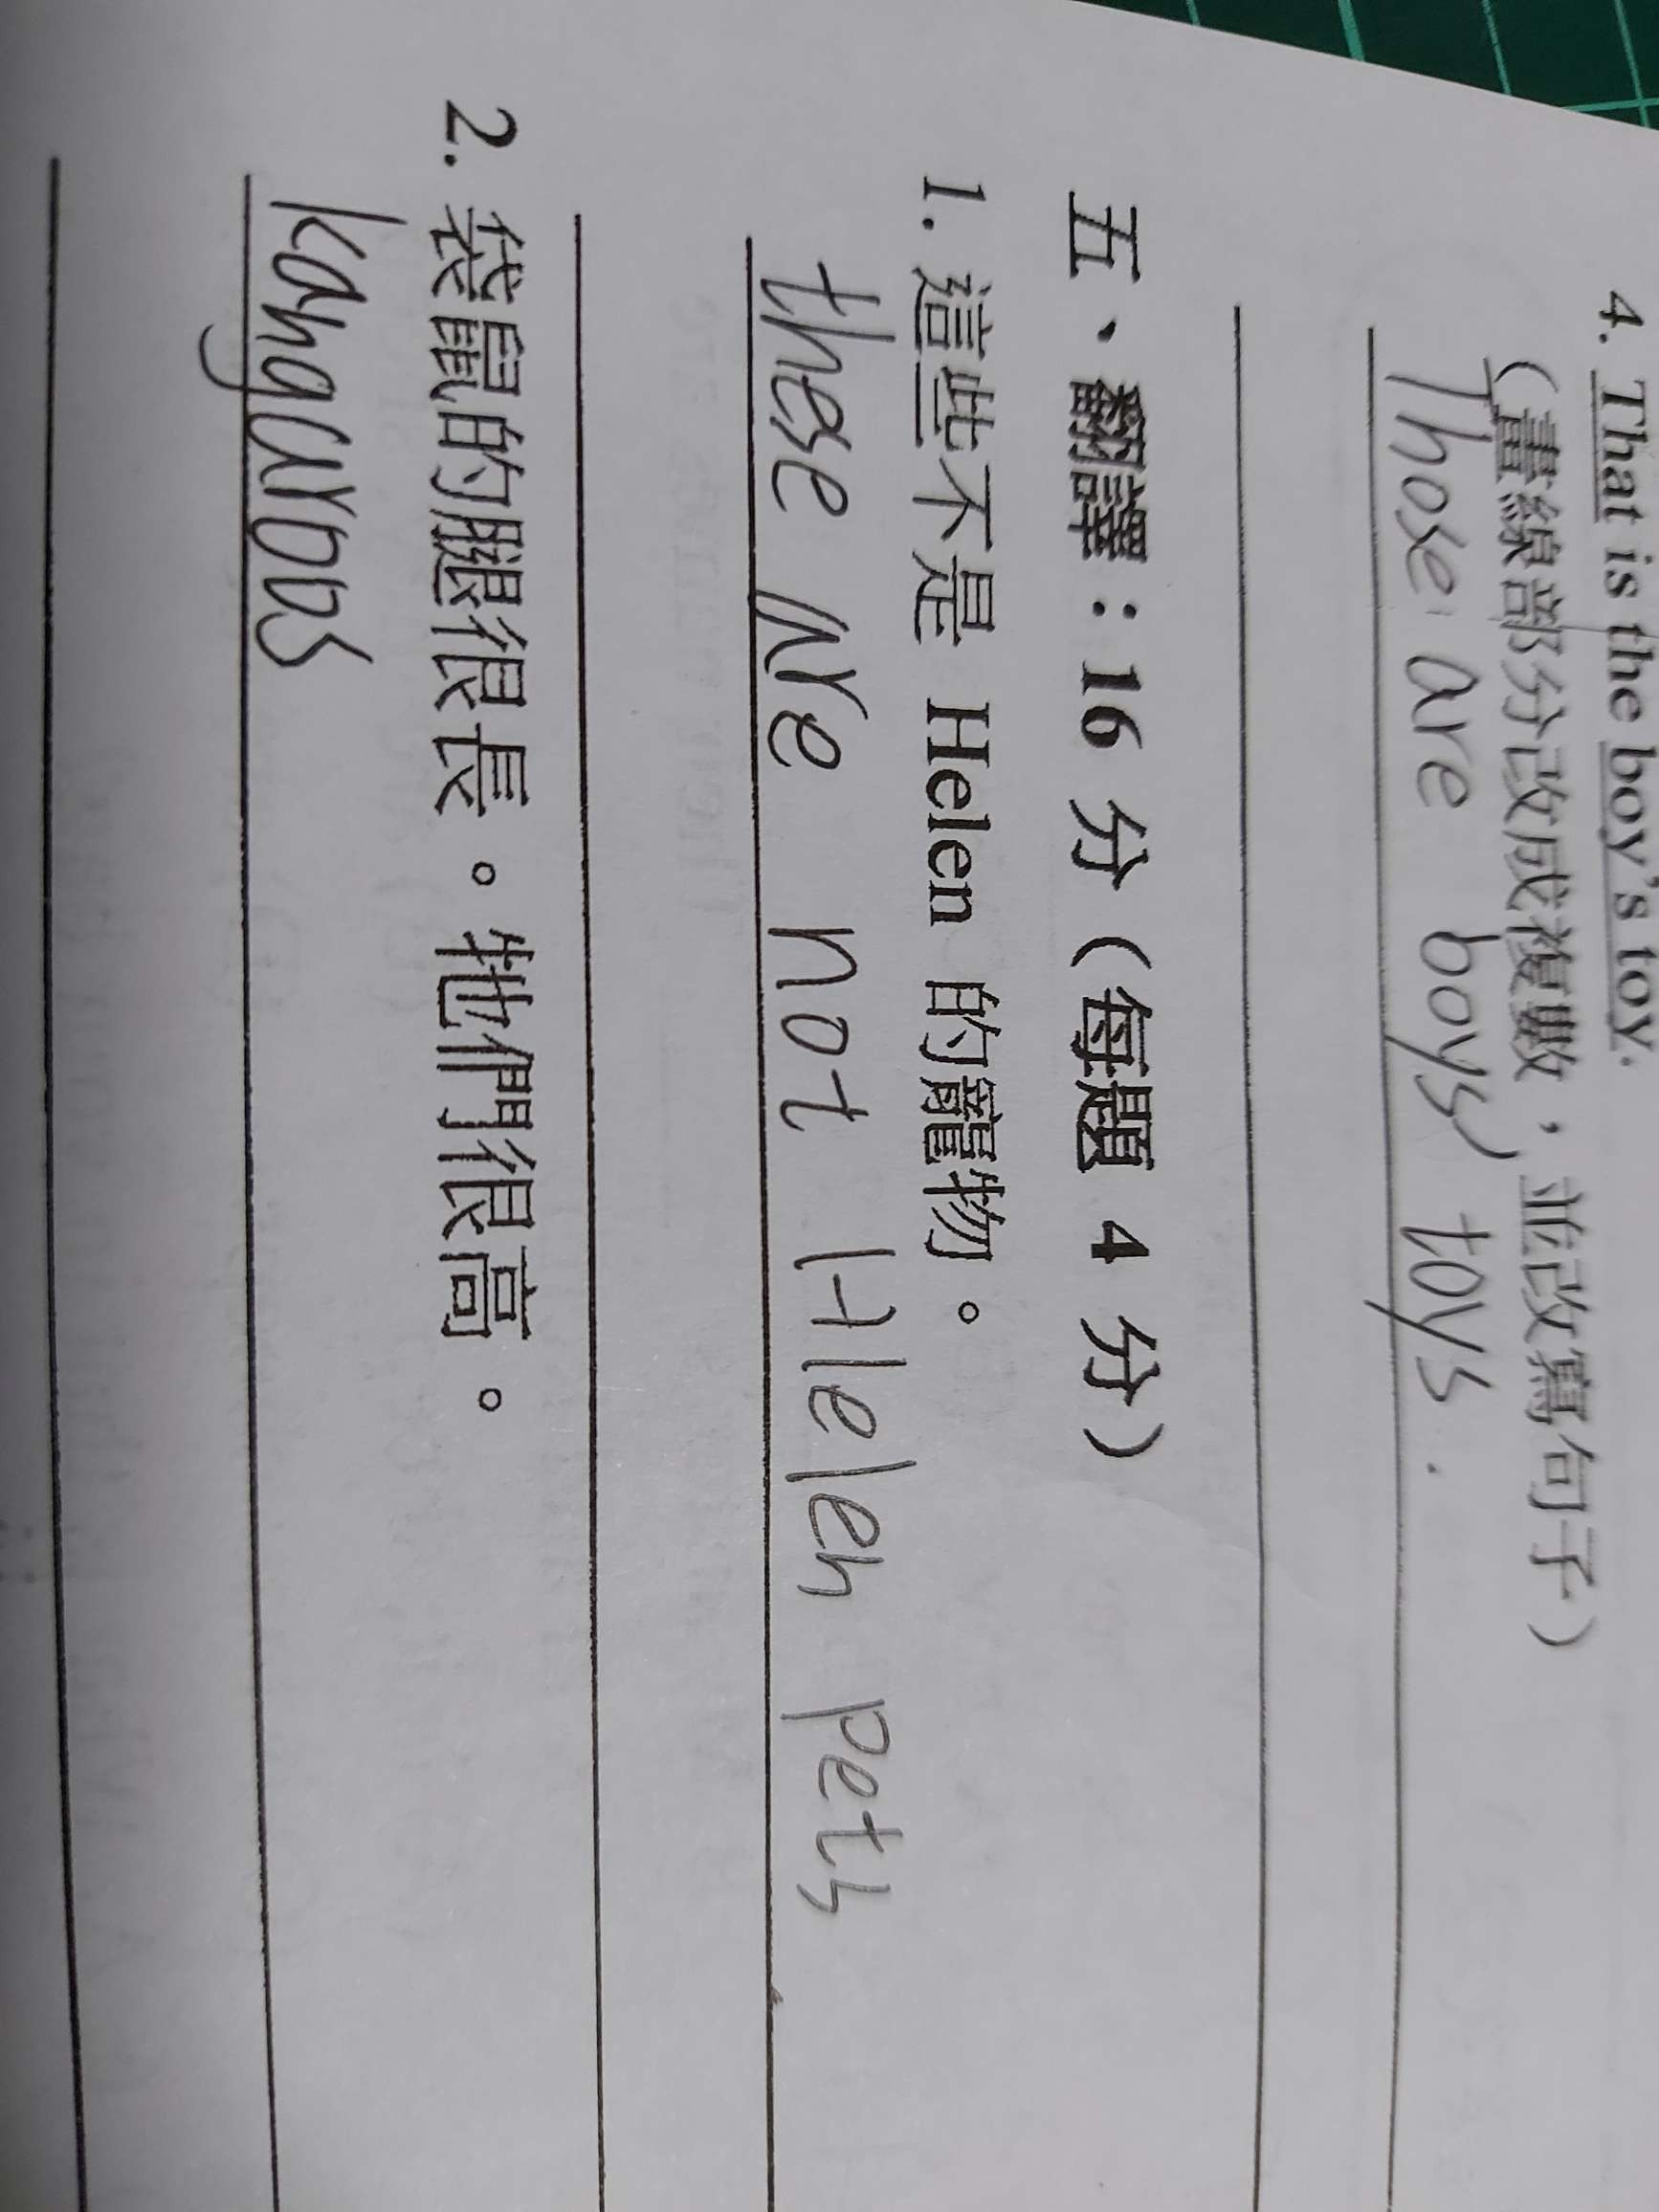 4. That is the boy's toy.
(畫線部分改成複數，並改寫句子)
Those are boys' toys.
五、翻譯：16 分（每題 4 分）
1. 這些不是 Helen 的寵物。
these are not Helen pets
2. 袋鼠的腿很長。牠們很高。
kangaroos